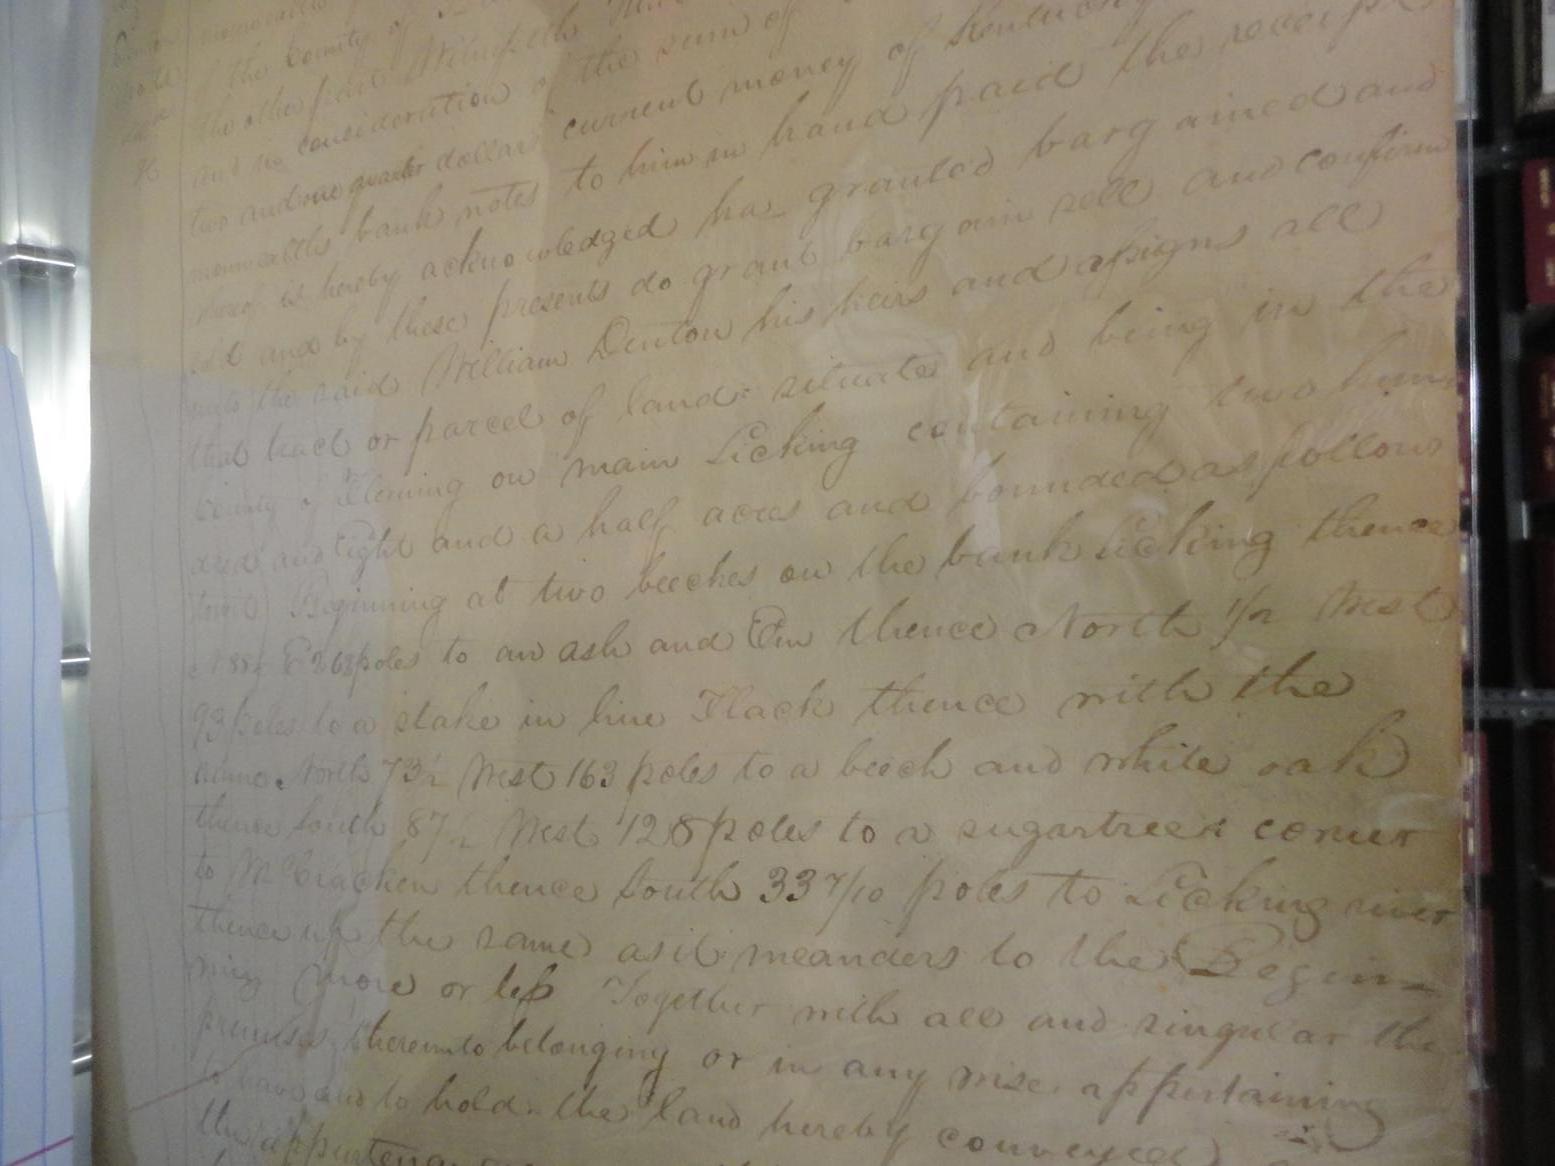 of the County of
the other part Witnesseth
and in consideration of the sum of
two and one quarter dollars current money of Kentucky
monwealths bank notes to him in hand paid the receipt
whereof is hereby acknowledged has granted bargained and
sold and by these presents do grant bargain sell and confirm
unto the said William Denton his heirs and assigns all
that tract or parcel of land situate and being in the
County of Fleming on main Licking containing two hun-
dred and Eight and a half acres and bounded as follows
(towit) Beginning at two beeches on the bank Licking thence
E 268 poles to an ash and Elm thence North 1/2 West
93 poles to a stake in line Flack thence with the
same North 73½ West 163 poles to a beech and white oak
thence South 87½ West 128 poles to a sugartree corner
to McCracken thence South 33 7/10 poles to Licking river
thence up the same as it meanders to the Begin-
ning more or less Together with all and singular the
premises thereunto belonging or in any wise appertaining
to have and to hold the land hereby conveyed
the appurtenan